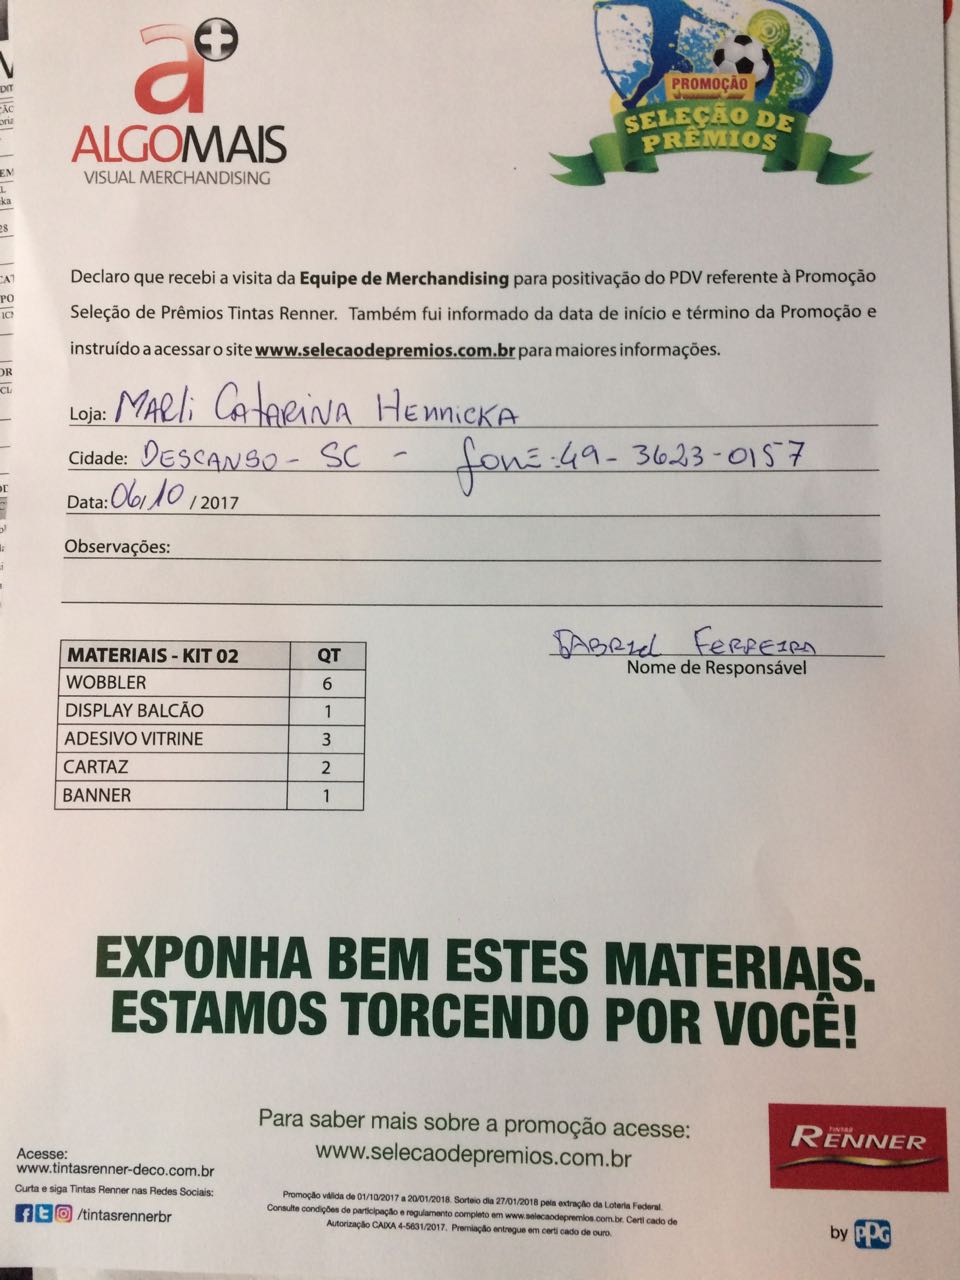 a+
ALGOMAIS
VISUAL MERCHANDISING
PROMOÇÃO
SELEÇÃO DE
PRÊMIOS
Declaro que recebi a visita da Equipe de Merchandising para positivação do PDV referente à Promoção
Seleção de Prêmios Tintas Renner. Também fui informado da data de início e término da Promoção e
instruído a acessar o site www.selecaodepremios.com.br para maiores informações.
Loja: MARLi CATARINA HENNICKA
Cidade: DESCANSO - SC - fone: 49 - 3623-0157
Data: 06/10 / 2017
Observações:
GABRIEL FERREIRA
Nome de Responsável
MATERIAIS - KIT 02 QT
WOBBLER 6
DISPLAY BALCÃO 1
ADESIVO VITRINE 3
CARTAZ 2
BANNER 1
EXPONHA BEM ESTES MATERIAIS.
ESTAMOS TORCENDO POR VOCÊ!
Para saber mais sobre a promoção acesse:
www.selecaodepremios.com.br
TINTAS
RENNER
Acesse:
www.tintasrenner-deco.com.br
Curta e siga Tintas Renner nas Redes Sociais:
/tintasrennerbr
Promoção válida de 01/10/2017 a 20/01/2018. Sorteio dia 27/01/2018 pela extração da Loteria Federal.
Consulte condições de participação e regulamento completo em www.selecaodepremios.com.br. Certi cado de
Autorização CAIXA 4-5631/2017. Premiação entregue em certi cado de ouro.
by PPG